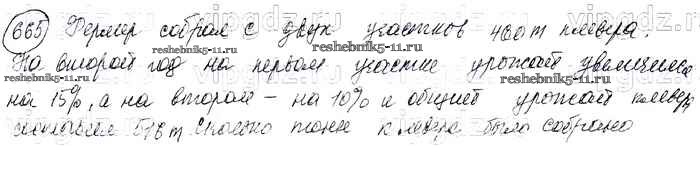 665 Фермер собрал с двух участков 460 т клевера.
На второй год на первом участке урожай увеличился
на 15%, а на втором – на 10% и общий урожай клевера
составил 518 т Сколько тонн клевера было собрано
reshebnik5-11.ru
reshebnik5-11.ru
reshebnik5-11.ru
vipgdz.ru